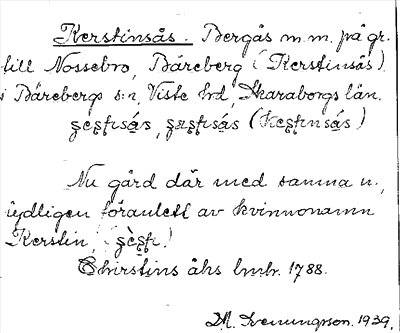 Kerstinsås. Bergås m.m. på gr.
till Nossebro, Båreberg (Kerstinsås)
i Bårebergs s:n, Viste hrd, Skaraborgs län.
Nu gård där med samma n.,
tydligen föranlett av kvinnonamn
Kerstin,
Chirstins åhs lmhr. 1788.
M. Svenungson. 1939.